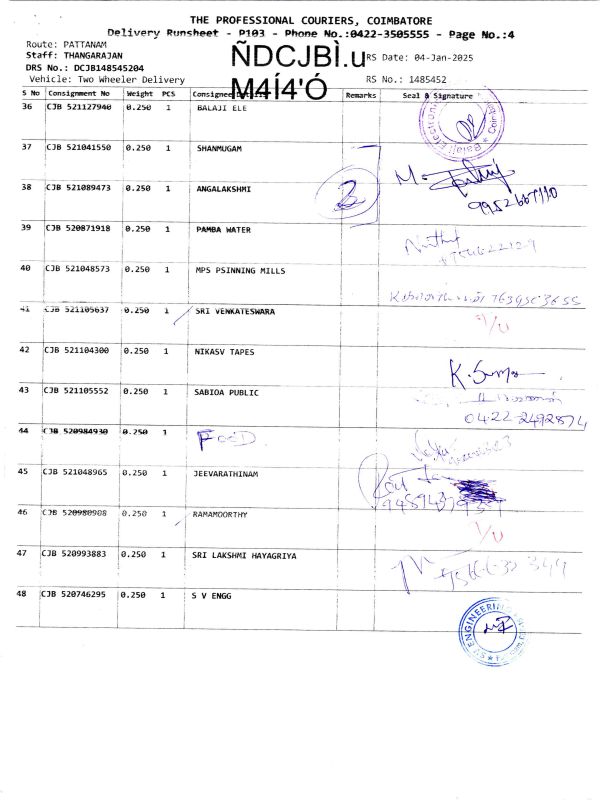 THE PROFESSIONAL COURIERS, COIMBATORE
Delivery Runsheet - P103 - Phone No.:0422-3505555 - Page No.:4
Route: PATTANAM
Staff: THANGARAJAN
DRS No.: DCJB148545204
Vehicle: Two Wheeler Delivery
ÑDCJBÌ.u
M4Í4'Ó
RS Date: 04-Jan-2025
RS No.: 1485452
S No Consignment No Weight PCS Consignee Details Remarks Seal & Signature
36 CJB 521127940 0.250 1 BALAJI ELE
37 CJB 521041550 0.250 1 SHANMUGAM
38 CJB 521089473 0.250 1 ANGALAKSHMI 2 9952667110
39 CJB 520871918 0.250 1 PAMBA WATER
40 CJB 521048573 0.250 1 MPS PSINNING MILLS
41 CJB 521105637 0.250 1 SRI VENKATESWARA
42 CJB 521104300 0.250 1 NIKASV TAPES
43 CJB 521105552 0.250 1 SABIOA PUBLIC 0422-2492874
44 CJB 520984930 0.250 1 FOOD
45 CJB 521048965 0.250 1 JEEVARATHINAM
46 CJB 520980908 0.250 1 RAMAMOORTHY
47 CJB 520993883 0.250 1 SRI LAKSHMI HAYAGRIYA
48 CJB 520746295 0.250 1 S V ENGG